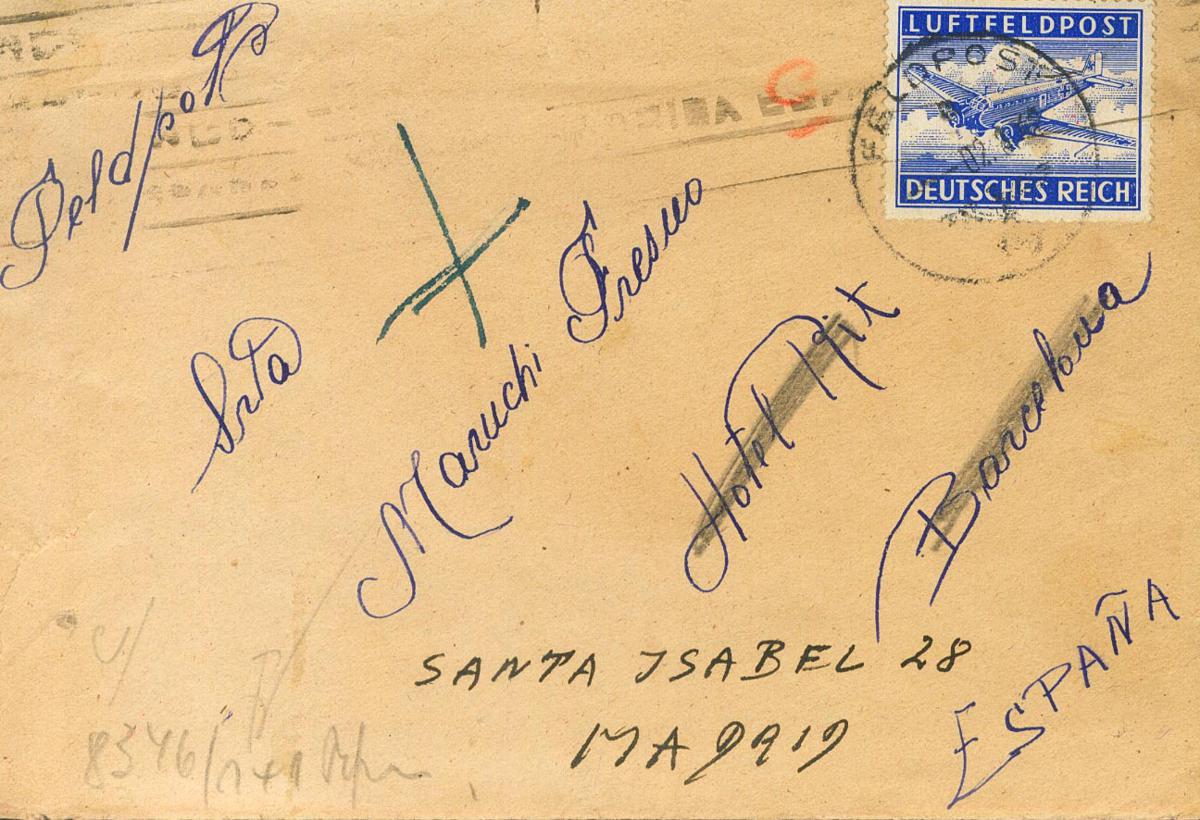 Feldpost
LUFTFELDPOST
FELDPOST
DEUTSCHES REICH
Srta
Maruchi Fresno
Hotel Rit
Barcelona
SANTA ISABEL 28
MADRID
ESPAÑA
8346/